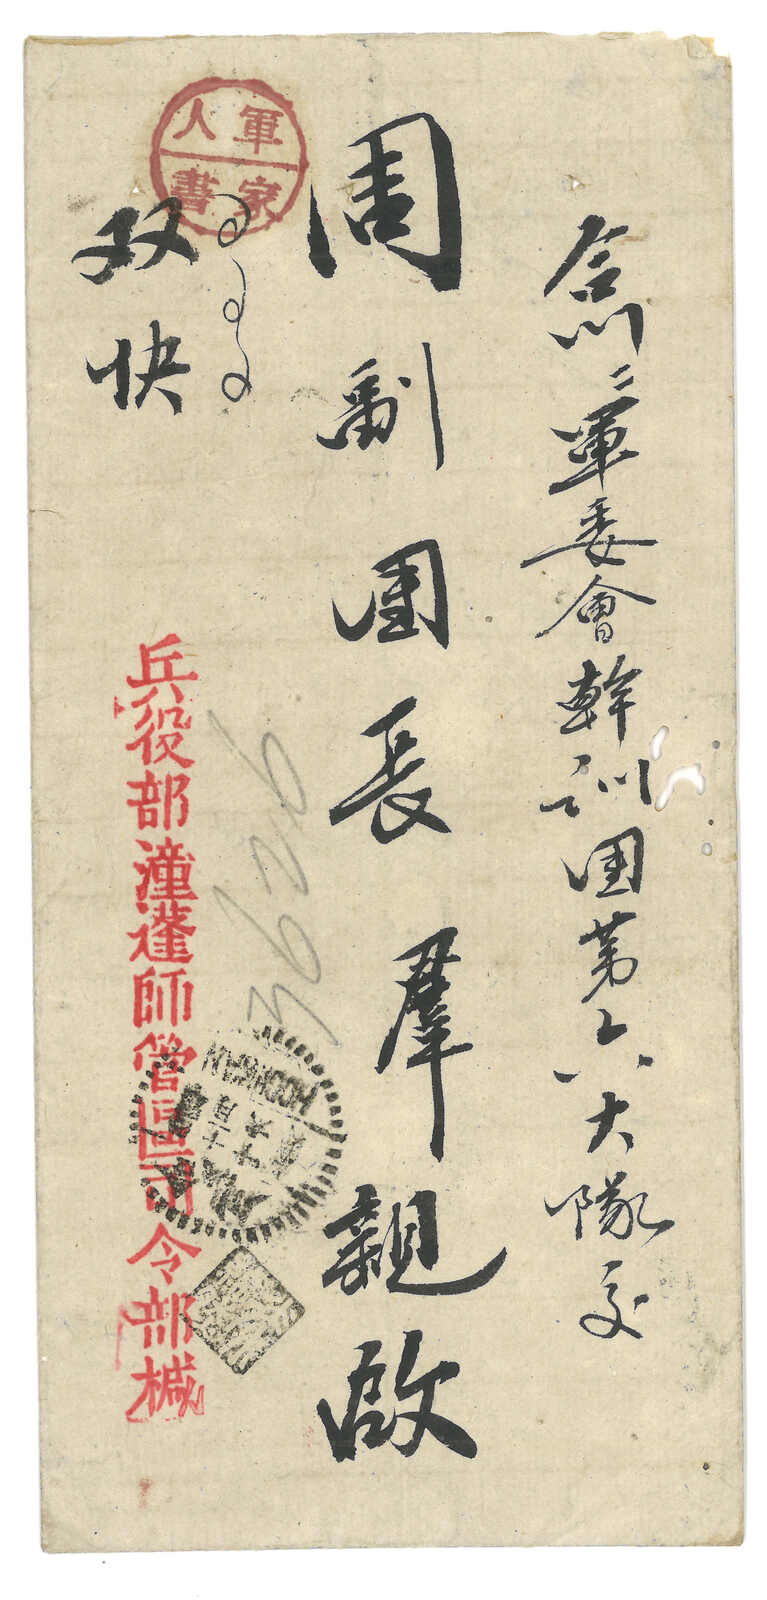 合川二軍委會幹訓團第六大隊交
周副團長羣親啟
軍人
家書
双快
兵役部潼蓬師管區司令部械
3626
HOCHWAN